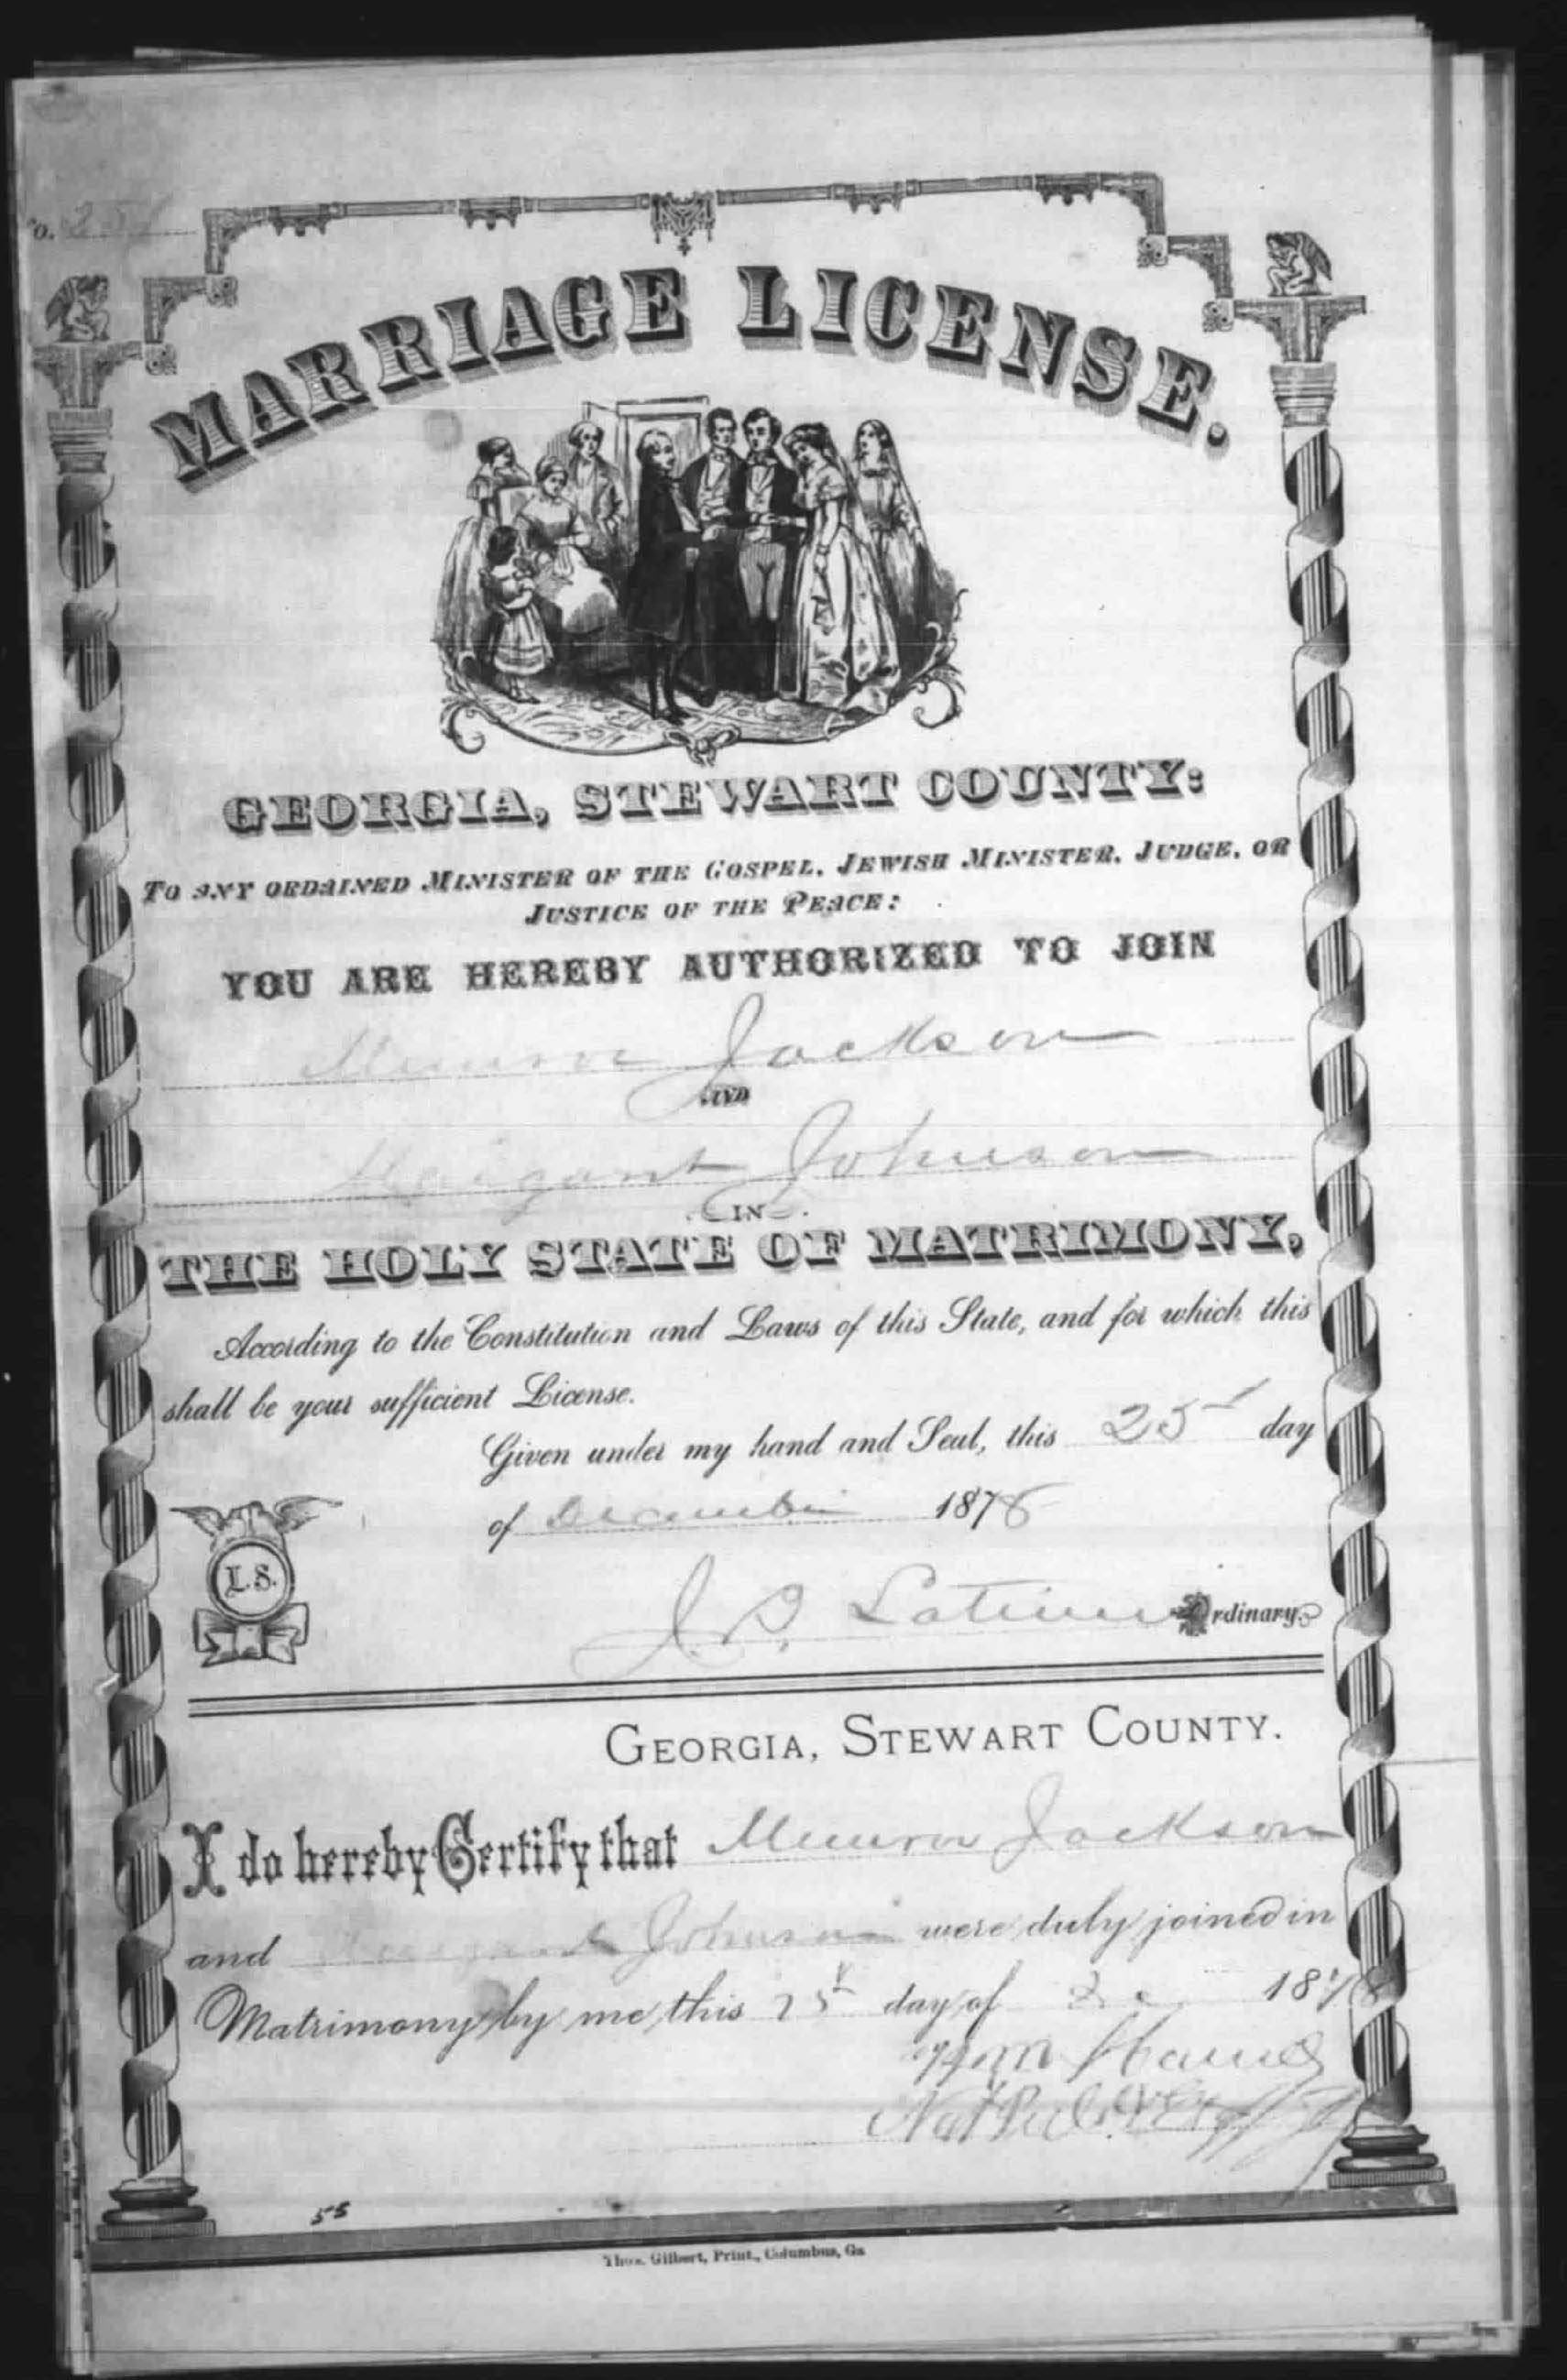 MARRIAGE LICENSE.
GEORGIA, STEWART COUNTY:
TO ANY ORDAINED MINISTER OF THE GOSPEL, JEWISH MINISTER, JUDGE, OR
JUSTICE OF THE PEACE:
YOU ARE HEREBY AUTHORIZED TO JOIN
Munroe Jackson
AND
Johnson
IN
THE HOLY STATE OF MATRIMONY,
According to the Constitution and Laws of this State, and for which this
shall be your sufficient License.
Given under my hand and Seal, this 25 day
of December 1878
L.S.
J. P. Latimer Ordinary.
GEORGIA, STEWART COUNTY.
I do hereby Certify that Munroe Jackson
and Johnson were duly joined in
Matrimony by me this 25 day of 1878
55
Thos. Gilbert, Print., Columbus, Ga